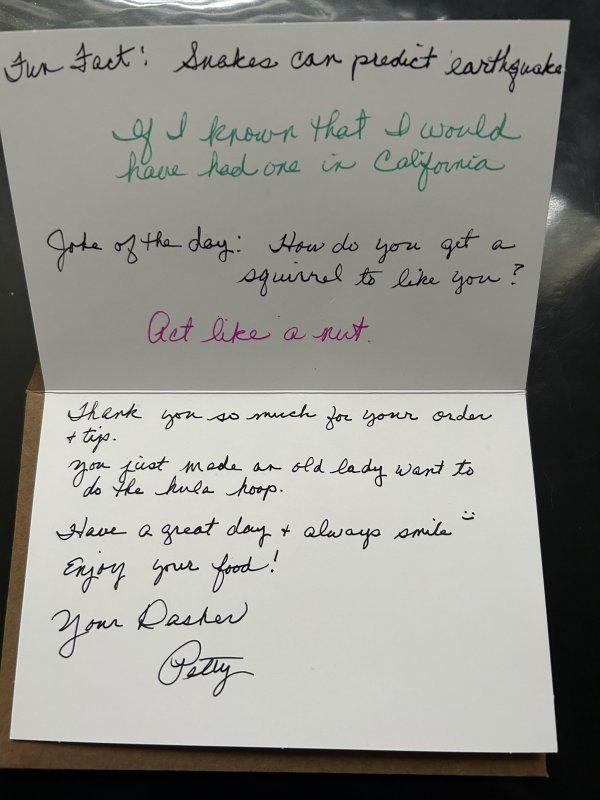 Fun Fact: Snakes can predict earthquake
If I known that I would
have had one in California
Joke of the day: How do you get a
squirrel to like you?
Act like a nut.
Thank you so much for your order
+ tip.
You just made an old lady want to
do the hula hoop.
Have a great day + always smile :)
Enjoy your food!
Your Dasher
Petty